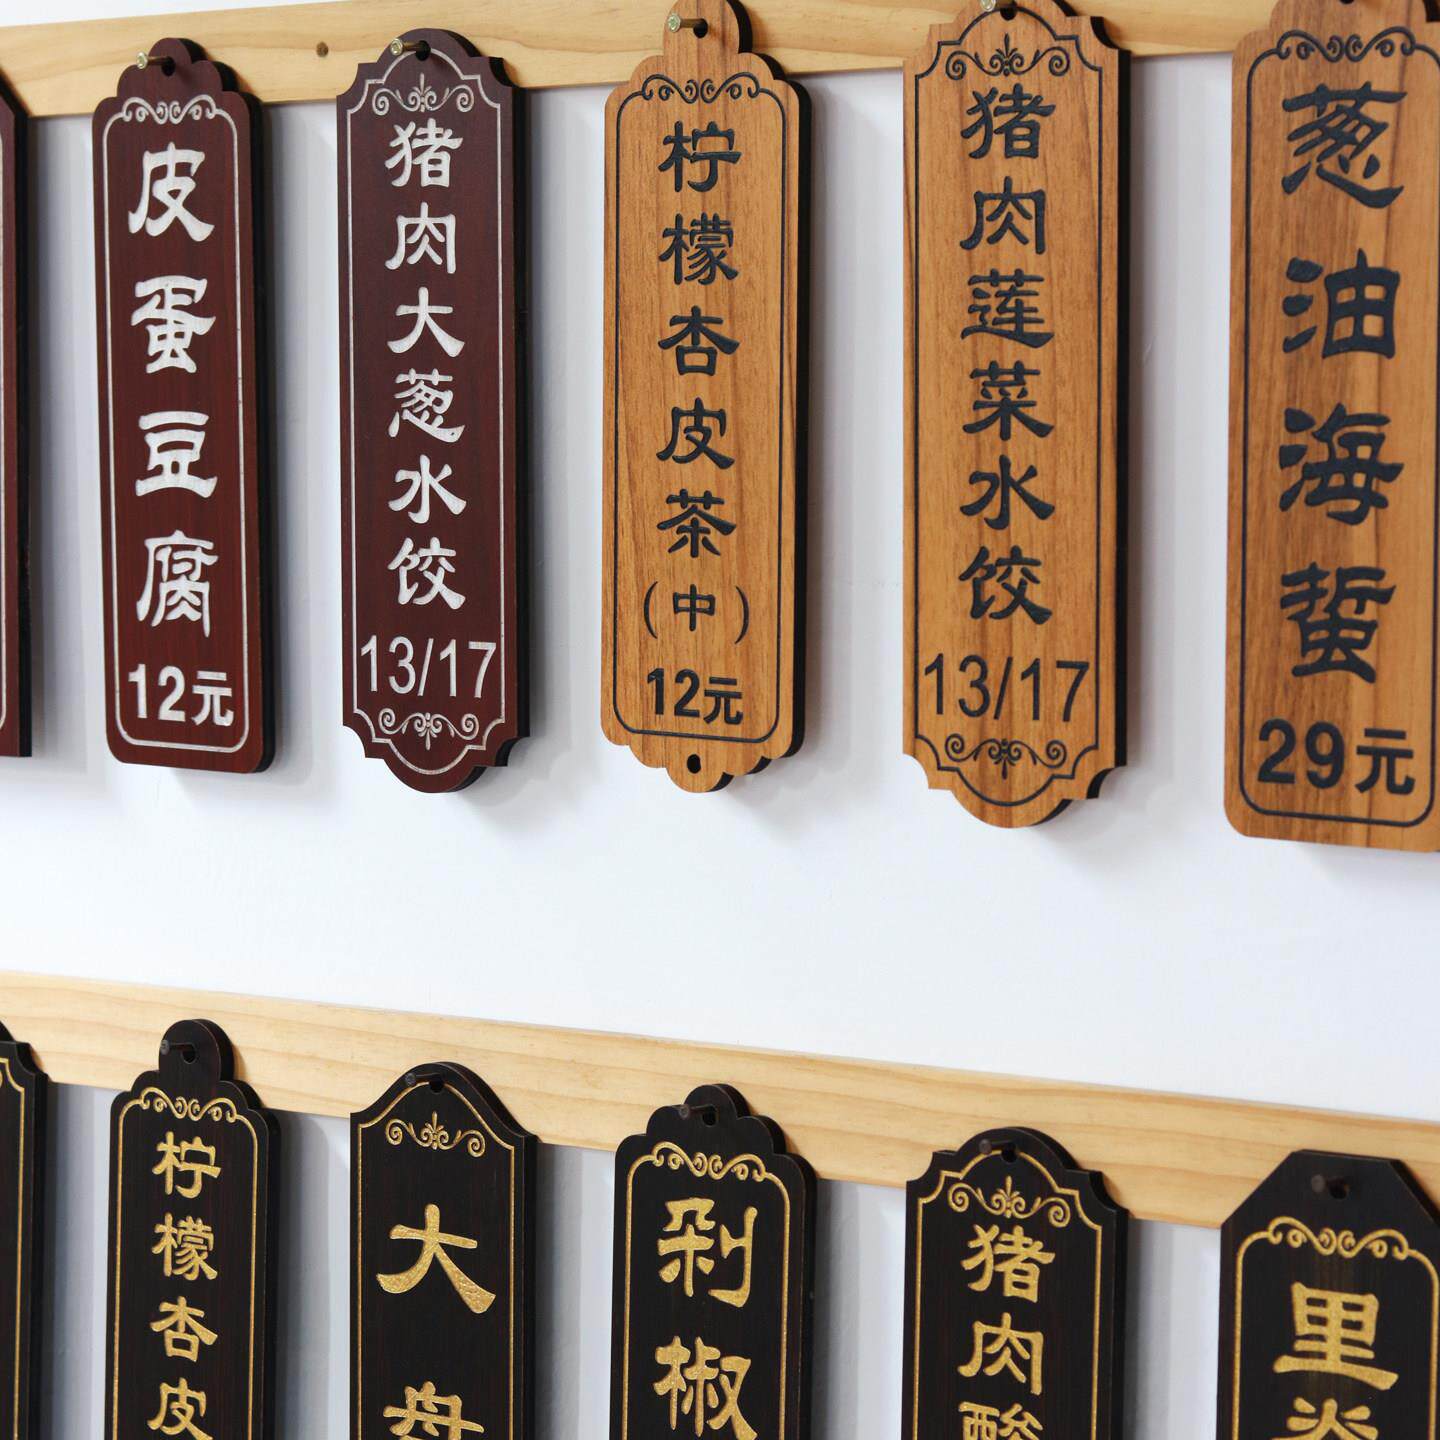 皮蛋豆腐
12元
猪肉大葱水饺
13/17
柠檬杏皮茶
(中)
12元
猪肉莲菜水饺
13/17
葱油海蜇
29元
柠檬杏皮
大盘
剁椒
猪肉酸
里